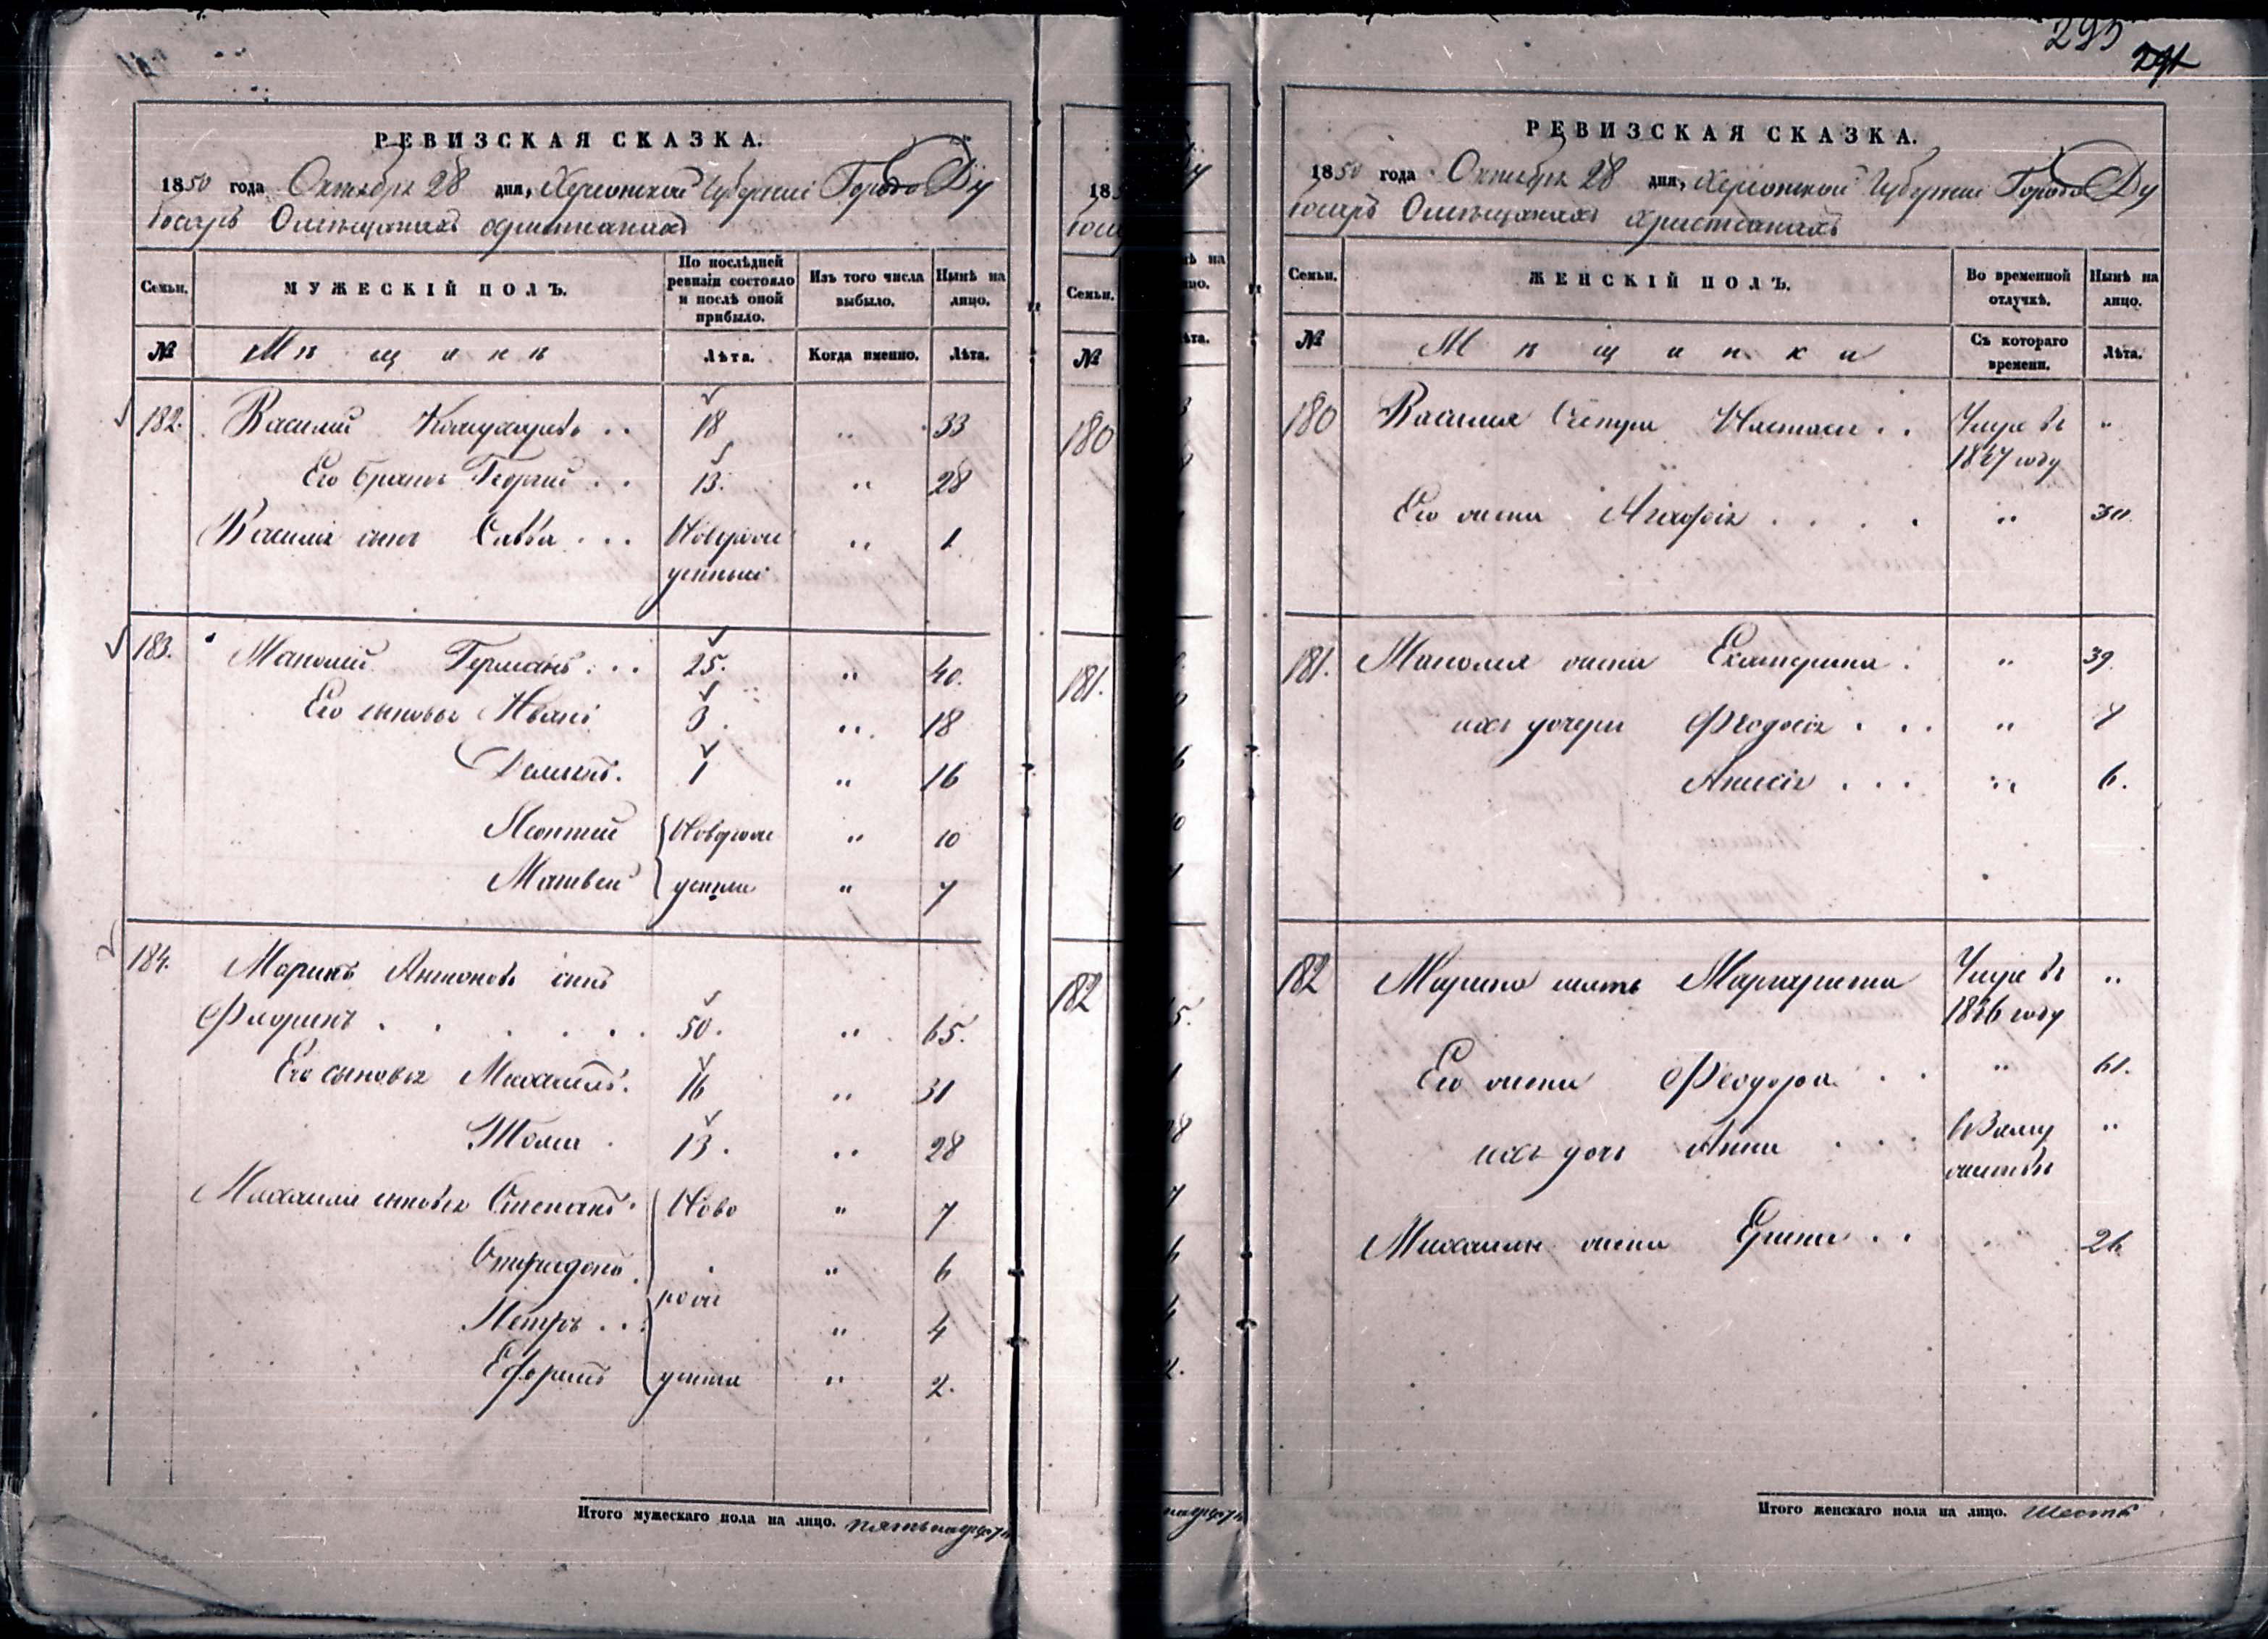 РЕВИЗСКАЯ СКАЗКА.
1850 года Октября 28 дня, Херсонской Губернии Города Ду
босаръ Омѣщанахъ христианахъ
Семьи.
МУЖЕСКІЙ ПОЛЪ.
По послѣдней ревизіи состояло и послѣ оной прибыло.
Изъ того числа выбыло.
Нынѣ на лицо.
№
Мѣщане
Лѣта.
Когда именно.
Лѣта.
182. Василий 18 " 33
Его братъ Георгий 13. " 28
Василія сынъ Савва Новорож " 1
денный
183. Манолий Германъ 25. " 40.
Его сыновья Иванъ 3. " 18
1 " 16
Леонтий Новорож " 10
Матвей дены " 7
184. Маринъ Антоновъ сынъ
Флоринъ 50. " 65.
Его сыновья Михаилъ. 16 " 31
Тома 13. " 28
Михаила сыновья Степанъ Ново " 7
Спиридонъ " 6
рож
Петръ " 4
Ефремъ дены " 2.
Итого мужескаго пола на лицо. пятнадцать
185
босаръ
Семьи.
№
180
181.
182
293
291
РЕВИЗСКАЯ СКАЗКА.
1850 года Октября 28 дня, Херсонской Губернии Города Ду
босаръ Омѣщанахъ христианахъ
Семьи.
ЖЕНСКІЙ ПОЛЪ.
Во временной отлучкѣ.
Нынѣ на лицо.
№
Мѣщанки
Съ котораго времени.
Лѣта.
180 Василия Сестра Настасия Умре въ "
1847 году
Его жена Агафія " 30
181. Манолия жена Екатерина " 39
ихъ дочери Феодосія " 7
Анисія " 6.
182 Марина мать Маргарита Умре въ "
1836 году
Его жена Феодора " 61.
ихъ дочь Анна Взаму "
жествѣ
Михаила жена Ерина " 26
Итого женскаго пола на лицо. Шесть